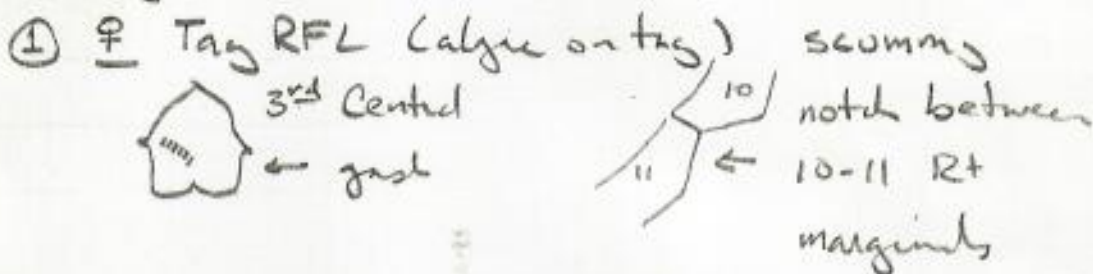 ① ♀ Tag RFL (algae on tag) scummy
3rd Central
← gash
10
11
notch between
← 10-11 Rt
marginals